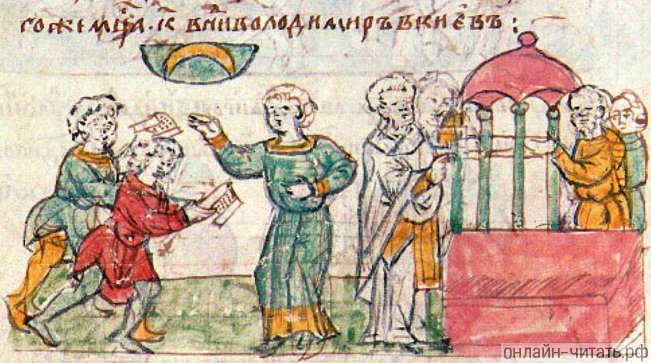 гожемц҃а. к҃ вниволодимиръвкиєвъ:
онлайн-читать.рф